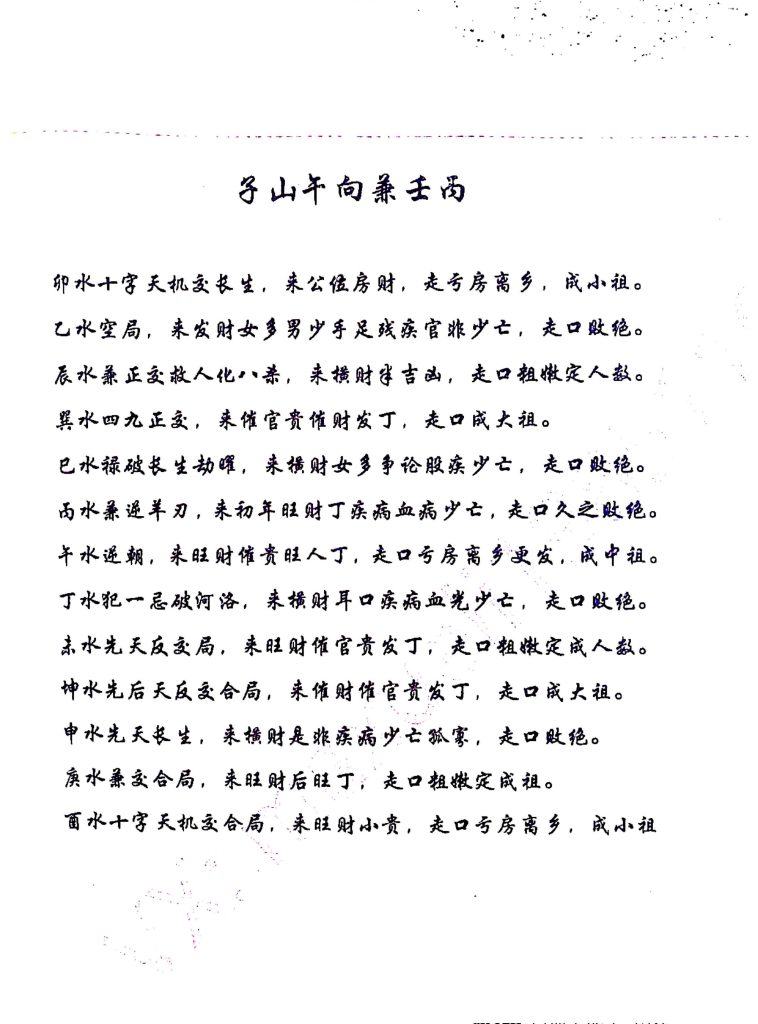 子山午向兼壬丙
卯水十字天机交长生，来公位房财，走亏房离乡，成小祖。
乙水空局，来发财女多男少手足残疾官非少亡，走口败绝。
辰水兼正交救人化八杀，来横财半吉凶，走口粗嫩定人数。
巽水四九正交，来催官贵催财发丁，走口成大祖。
巳水禄破长生劫曜，来横财女多争论股疾少亡，走口败绝。
丙水兼逆羊刃，来初年旺财丁疾病血病少亡，走口久之败绝。
午水逆朝，来旺财催贵旺人丁，走口亏房离乡更发，成中祖。
丁水犯一忌破河洛，来横财耳口疾病血光少亡，走口败绝。
未水先天反交局，来旺财催官贵发丁，走口粗嫩定成人数。
坤水先后天反交合局，来催财催官贵发丁，走口成大祖。
申水先天长生，来横财是非疾病少亡孤寡，走口败绝。
庚水兼交合局，来旺财后旺丁，走口粗嫩定成祖。
酉水十字天机交合局，来旺财小贵，走口亏房离乡，成小祖